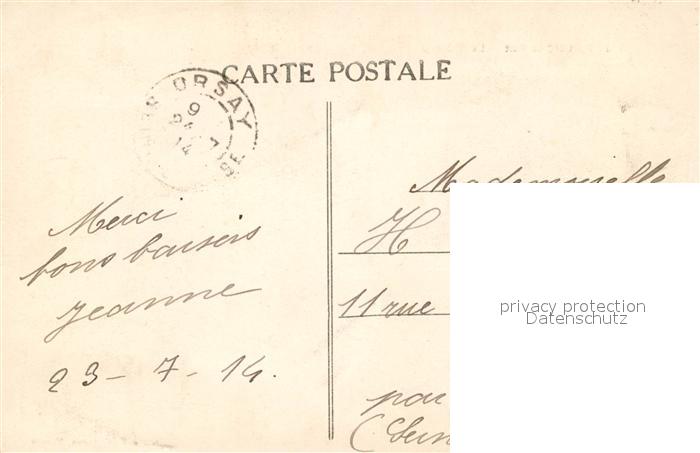 CARTE POSTALE
ORSAY
9
24 7
14
Merci
bons baisers
Jeanne
23-7-14.
Mademoiselle
H
11 rue
par
privacy protection
Datenschutz